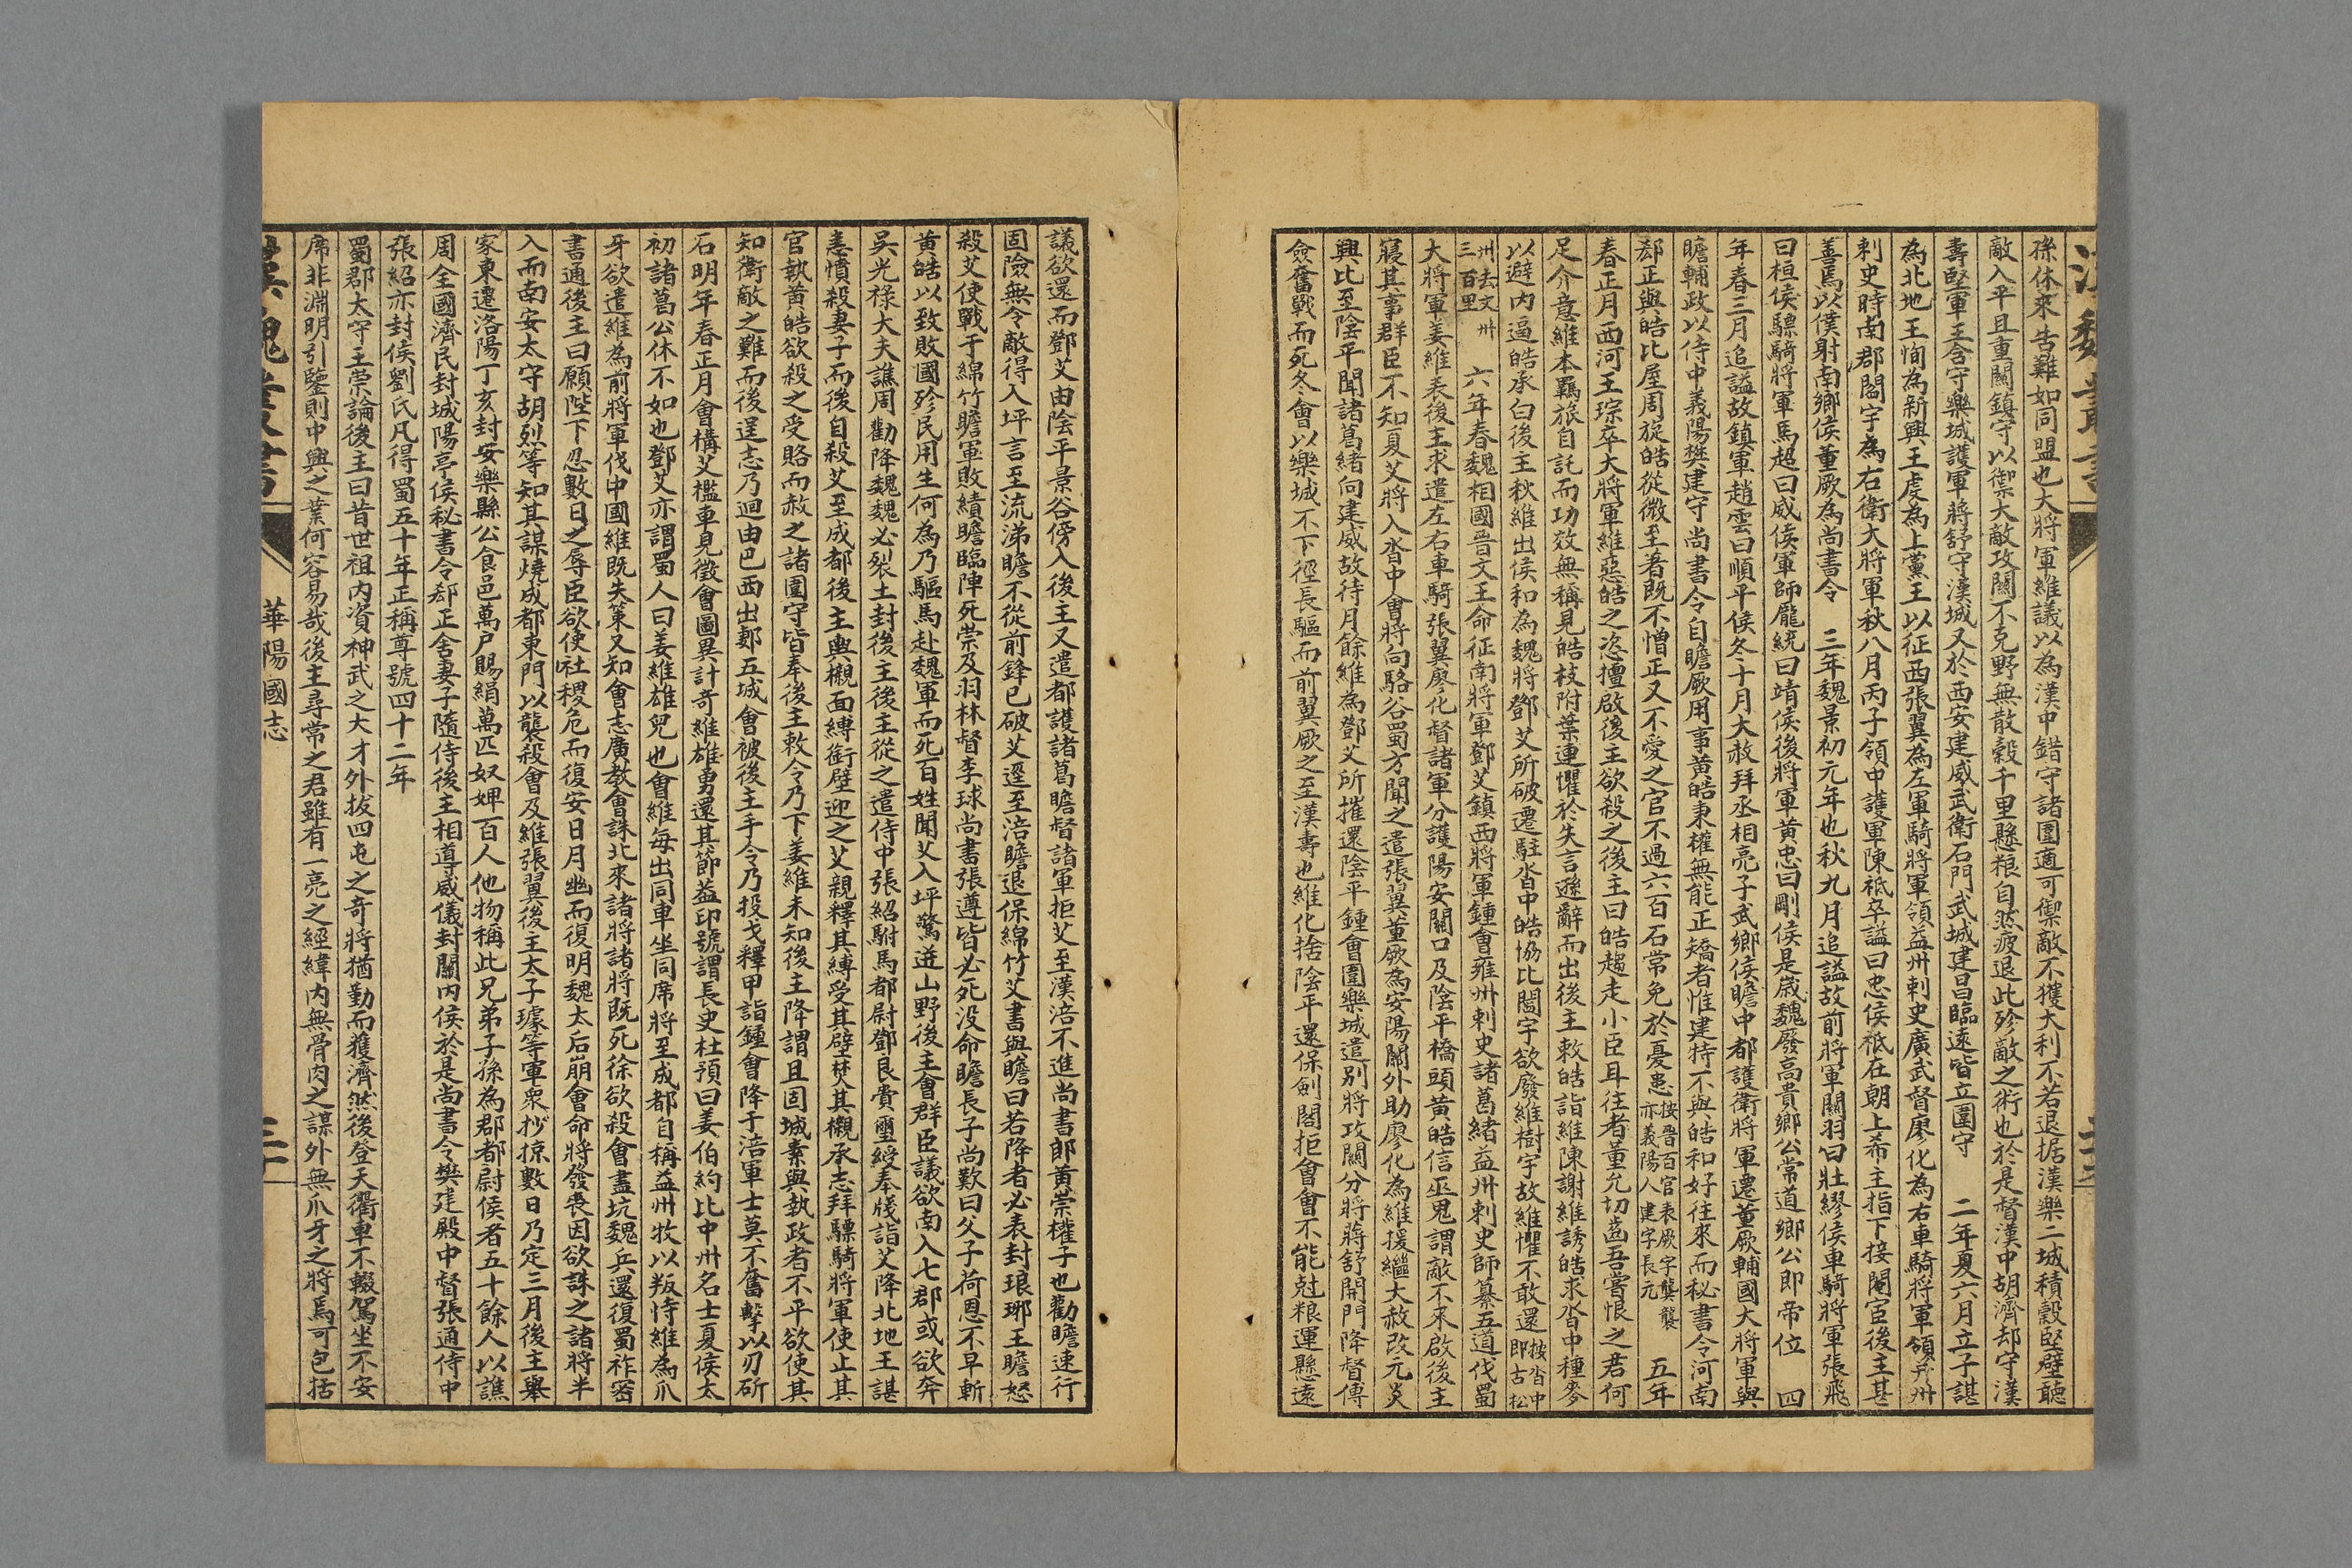 孫休來告難如同盟也大將軍維議以為漢中錯守諸圍適可禦敵不獲大利不若退据漢樂二城積穀堅壁聽
敵入平且重關鎮守以禦大敵攻關不克野無散穀千里懸粮自然疲退此殄敵之術也於是督漢中胡濟却守漢
壽堅軍王含守樂城護軍蔣舒守漢城又於西安建威武衛石門武城建昌臨遠皆立圍守　二年夏六月立子諶
為北地王恂為新興王虔為上黨王以征西張翼為左軍騎將軍領益州刺史廣武督廖化為右車騎將軍領并州
刺史時南郡閻宇為右衛大將軍秋八月丙子領中護軍陳祗卒謚曰忠侯祗在朝上希主指下接閹宦後主甚
善馬以僕射南鄉侯董厥為尚書令　三年魏景初元年也秋九月追謚故前將軍關羽曰壯繆侯車騎將軍張飛
曰桓侯驃騎將軍馬超曰威侯軍師龐統曰靖侯後將軍黄忠曰剛侯是歲魏廢高貴鄉公常道鄉公即帝位　四
年春三月追謚故鎮軍趙雲曰順平侯冬十月大赦拜丞相亮子武鄉侯瞻中都護衛將軍遷董厥輔國大將軍與
瞻輔政以侍中義陽樊建守尚書令自瞻厥用事黄皓秉權無能正矯者惟建特不與皓和好往來而秘書令河南
郄正與皓比屋周旋皓從微至著既不憎正又不愛之官不過六百石常免於憂患按晋百官表厥字龔襲亦義陽人建字長元　五年
春正月西河王琮卒大將軍維惡皓之恣擅啟後主欲殺之後主曰皓趨走小臣耳往者董允切齒吾嘗恨之君何
足介意維本羈旅自託而功效無稱見皓枝附葉連懼於失言遜辭而出後主敕皓詣維陳謝維誘皓求沓中種麥
以避内逼皓承白後主秋維出侯和為魏將鄧艾所破還駐沓中皓協比閻宇欲廢維樹宇故維懼不敢還按沓中即古松
州去文州三百里　六年春魏相國晋文王命征南將軍鄧艾鎮西將軍鍾會雍州刺史諸葛緒益州刺史師纂五道伐蜀
大將軍姜維表後主求遣左右車騎張翼廖化督諸軍分護陽安關口及陰平橋頭黄皓信巫鬼謂敵不來啟後主
寢其事群臣不知夏艾將入沓中會將向駱谷蜀方聞之遣張翼董厥為安陽關外助廖化為維援繼大赦改元炎
興比至陰平聞諸葛緒向建威故待月餘維為鄧艾所摧還陰平鍾會圍樂城遣别將攻關分將蔣舒開門降督傅
僉奮戰而死冬會以樂城不下徑長驅而前翼厥之至漢壽也維化捨陰平還保劍閣拒會會不能尅粮運懸遠
議欲還而鄧艾由陰平景谷傍入後主又遣都護諸葛瞻督諸軍拒艾至漢涪不進尚書郎黄崇權子也勸瞻速行
固險無令敵得入坪言至流涕瞻不從前鋒已破艾逕至涪瞻退保綿竹艾書與瞻曰若降者必表封琅琊王瞻怒
殺艾使戰于綿竹瞻軍敗績瞻臨陣死崇及羽林督李球尚書張遵皆必死没命瞻長子尚歎曰父子荷恩不早斬
黄皓以致敗國殄民用生何為乃驅馬赴魏軍而死百姓聞艾入坪驚迸山野後主會群臣議欲南入七郡或欲奔
吳光禄大夫譙周勸降魏魏必裂土封後主後主從之遣侍中張紹駙馬都尉鄧良賫璽綬奉牋詣艾降北地王諶
恚憤殺妻子而後自殺艾至成都後主輿櫬面縛銜璧迎之艾親釋其縛受其璧焚其櫬承志拜驃騎將軍使止其
官執黄皓欲殺之受賂而赦之諸圍守皆奉後主敕令乃下姜維未知後主降謂且固城素與執政者不平欲使其
知衛敵之難而後逞志乃迴由巴西出郪五城會被後主手令乃投戈釋甲詣鍾會降于涪軍士莫不奮擊以刃斫
石明年春正月會構艾檻車見徵會圖異計奇維雄勇還其節蓋印號謂長史杜預曰姜伯約比中州名士夏侯太
初諸葛公休不如也鄧艾亦謂蜀人曰姜維雄兒也會維每出同車坐同席將至成都自稱益州牧以叛恃維為爪
牙欲遣維為前將軍伐中國維既失策又知會志廣教會誅北來諸將諸將既死徐欲殺會盡坑魏兵還復蜀祚密
書通後主曰願陛下忍數日之辱臣欲使社稷危而復安日月幽而復明魏太后崩會命將發喪因欲誅之諸將半
入而南安太守胡烈等知其謀燒成都東門以襲殺會及維張翼後主太子璩等軍衆抄掠數日乃定三月後主舉
家東遷洛陽丁亥封安樂縣公食邑萬户賜絹萬匹奴婢百人他物稱此兄弟子孫為郡都尉侯者五十餘人以譙
周全國濟民封城陽亭侯秘書令郄正舍妻子隨侍後主相導威儀封關内侯於是尚書令樊建殿中督張通侍中
張紹亦封侯劉氏凡得蜀五十年正稱尊號四十二年
蜀郡太守王崇論後主曰昔世祖内資神武之大才外拔四屯之奇將猶勤而獲濟然後登天衢車不輟駕坐不安
席非淵明引鑒則中興之業何容易哉後主尋常之君雖有一亮之經緯内無骨肉之謀外無爪牙之將馬可包括
華陽國志